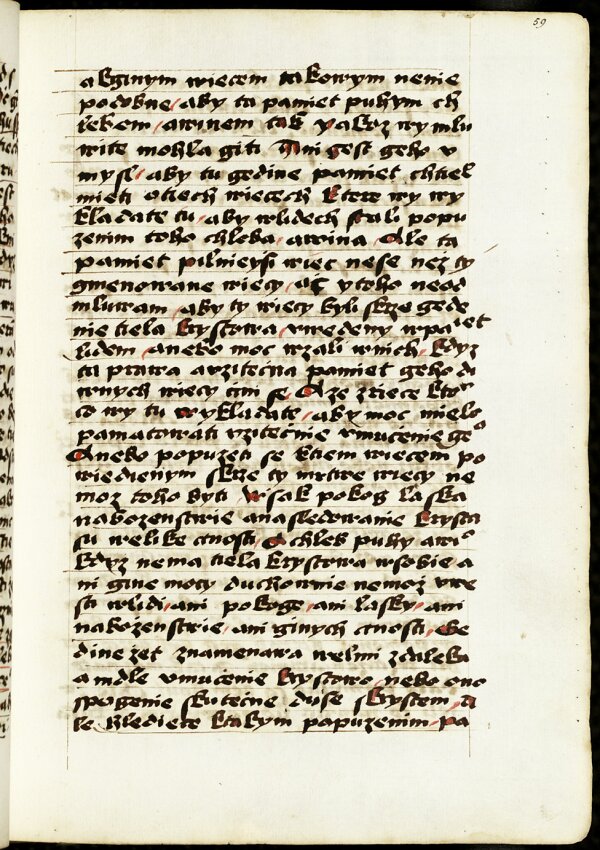 59
akginym wiecem takowym nenie
podobne / aby ta pamiet puhym ch
lebem / awinem tak yakoz wy mlu
wite mohla giti Ani gest geho v
mysl / aby tu gedine pamiet chtiel
mieti otiech wiecech ktere wy wy
kladate tu / aby wlidech stali popu
zenim toho chleba / awina / Ale ta
pamiet pilnieysi wiec nese nez ty
gmenowane wiecy / ac ytoho neod
mluwam / aby ty wiecy byli skrze gede
nie tiela krystowa / vwedeny wpamiet
lidem / anebo moc wzali wnich / kdyz
ta prawa avzitecna pamiet geho di
wnych wiecy cini se / A ze zriece kto
co wy tu wykladate / aby moc mielo
pamatowati vzitecnie vmucenie geo
Anebo popuzeti se ktiem wiecem po
wiedienym skrze ty mrtwe wiecy ne
moz toho byti Wsak pokog laska
nabozenstwie anasledowanie krysta
su welike cnosti / A chleb puhy awio
kdyz nema tiela krystowa wsobie a
ni gine mocy duchownie nemoz vwe
sti wlidi / ani pokoge / ani lasky / ani
nabozenstwie / ani ginych cnosti / Ge
dine zet znamenawa welmi zdaleka
a mdle vmucenie krystowo / nebo ono
spogenie skutecne duse skrystem / A
le hlediete ktakym popuzenim / pa